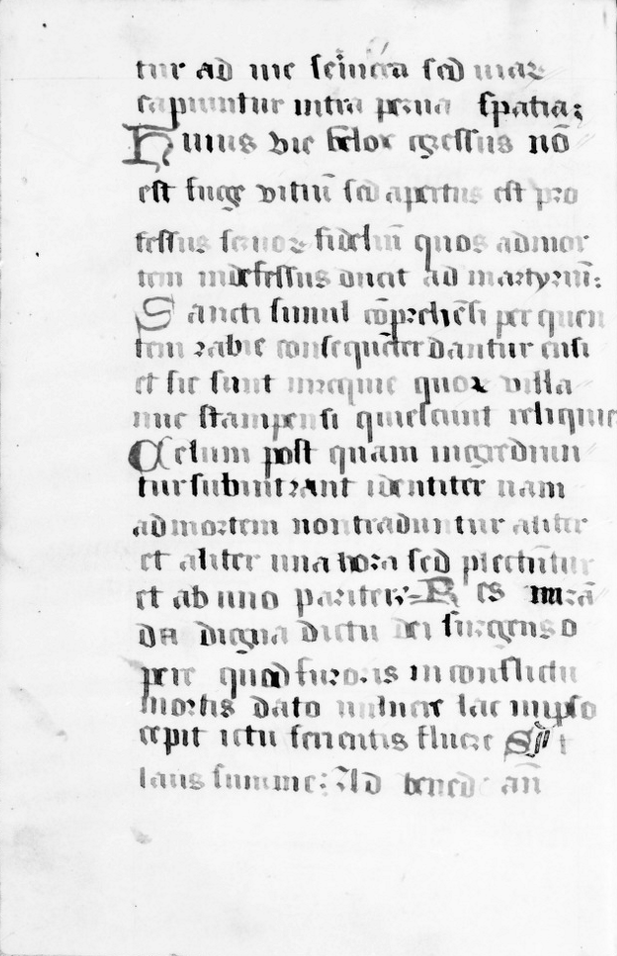 tur ad me sed mar
capiuntur intra spatia:
Huius vie egressus nō
est fuge vitiū sed apertus est pro
fessus fideliū quos admor
tem indefessus ducit ad martyriū:
Sancti simul cōprehēsi per quen
tem rabie consequēter dantur ensi
et sic sunt quor villa
nue stampensi quiescunt reliquie
Celum post quam ingrediun
tur subintrant idēntitēr nam
admortem nontraduntur aliter
et aliter una hora sed plectūtur
et ab uno pariter: Res mirā
da digna dictu dei surgens o
pere quod furoris inconflictu
mortis dato lac mipso
cepit ictu ferientis fluere
laus summe: Ad bened an̄